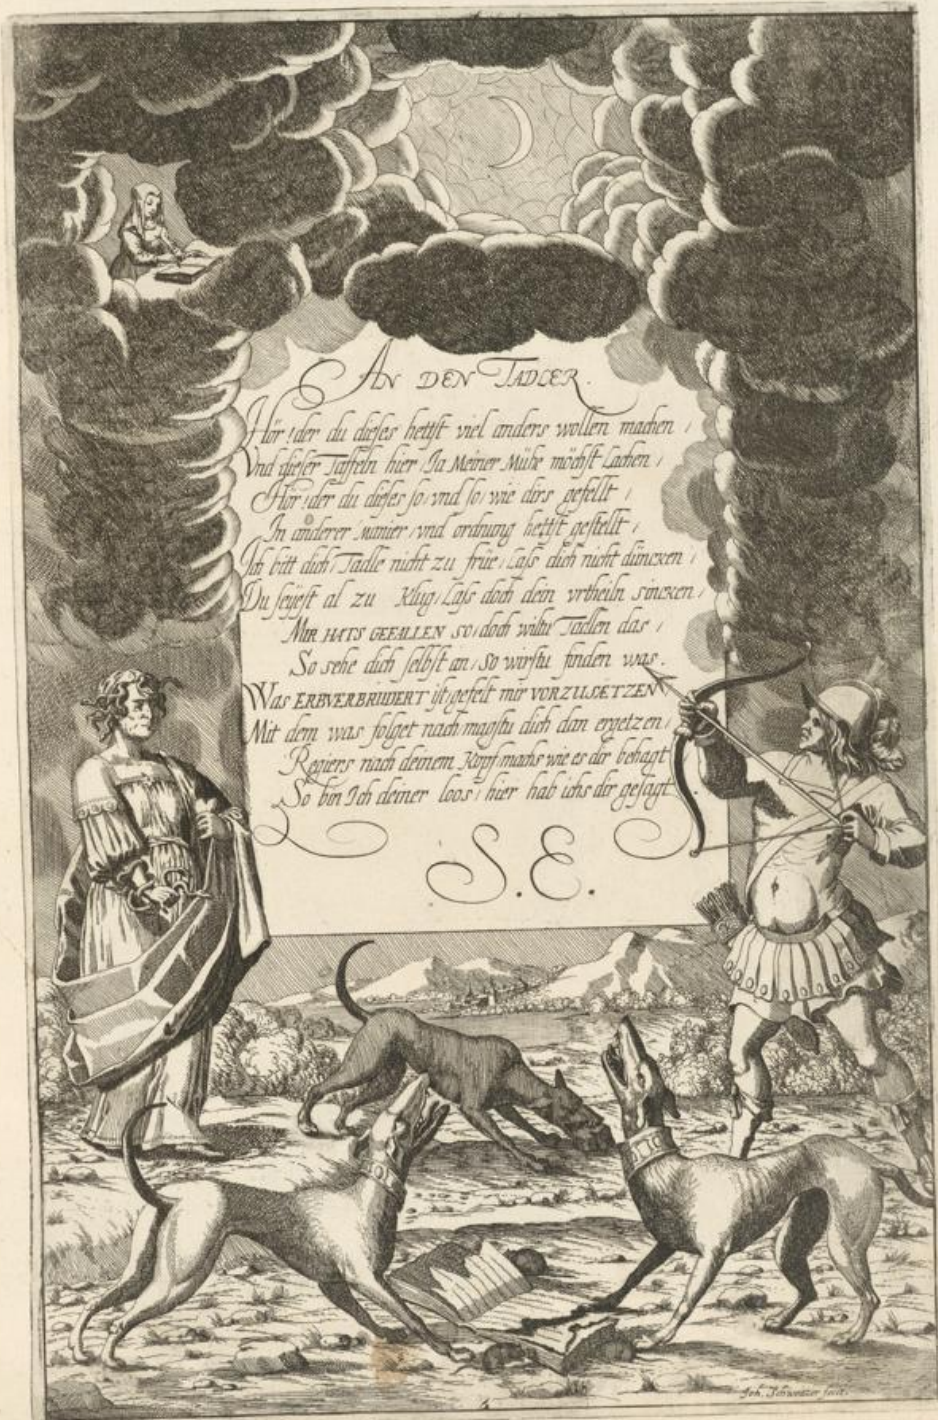 AN DEN TADLER.
Hör! der du dieses hettst viel anders wollen machen /
Vnd dieser Taffeln hier / Ja Meiner Mühe möchst Lachen /
Hör! der du dieses so / vnd so / wie dirs gefellt /
In anderer manier / vnd ordnung hettst gestellt /
Ich bitt dich / Tadle nicht zu früe / Lass dich nicht düncken /
Du seyest al zu Klug / Lass doch dein vrtheiln sincken /
MIR HATS GEFALLEN so / doch wiltu Tadlen das /
So sehe dich selbst an / So wirstu finden was.
WAS ERBVERBRUDERT ist / gefelt mir VORZUSETZEN
Mit dem was folget nach magstu dich dan ergetzen /
Regiers nach deinem Kopf / machs wie es dir behagt
So bin Ich deiner loos / hier hab ichs dir gesagt.
S. E.
Joh. Schweizer fecit.